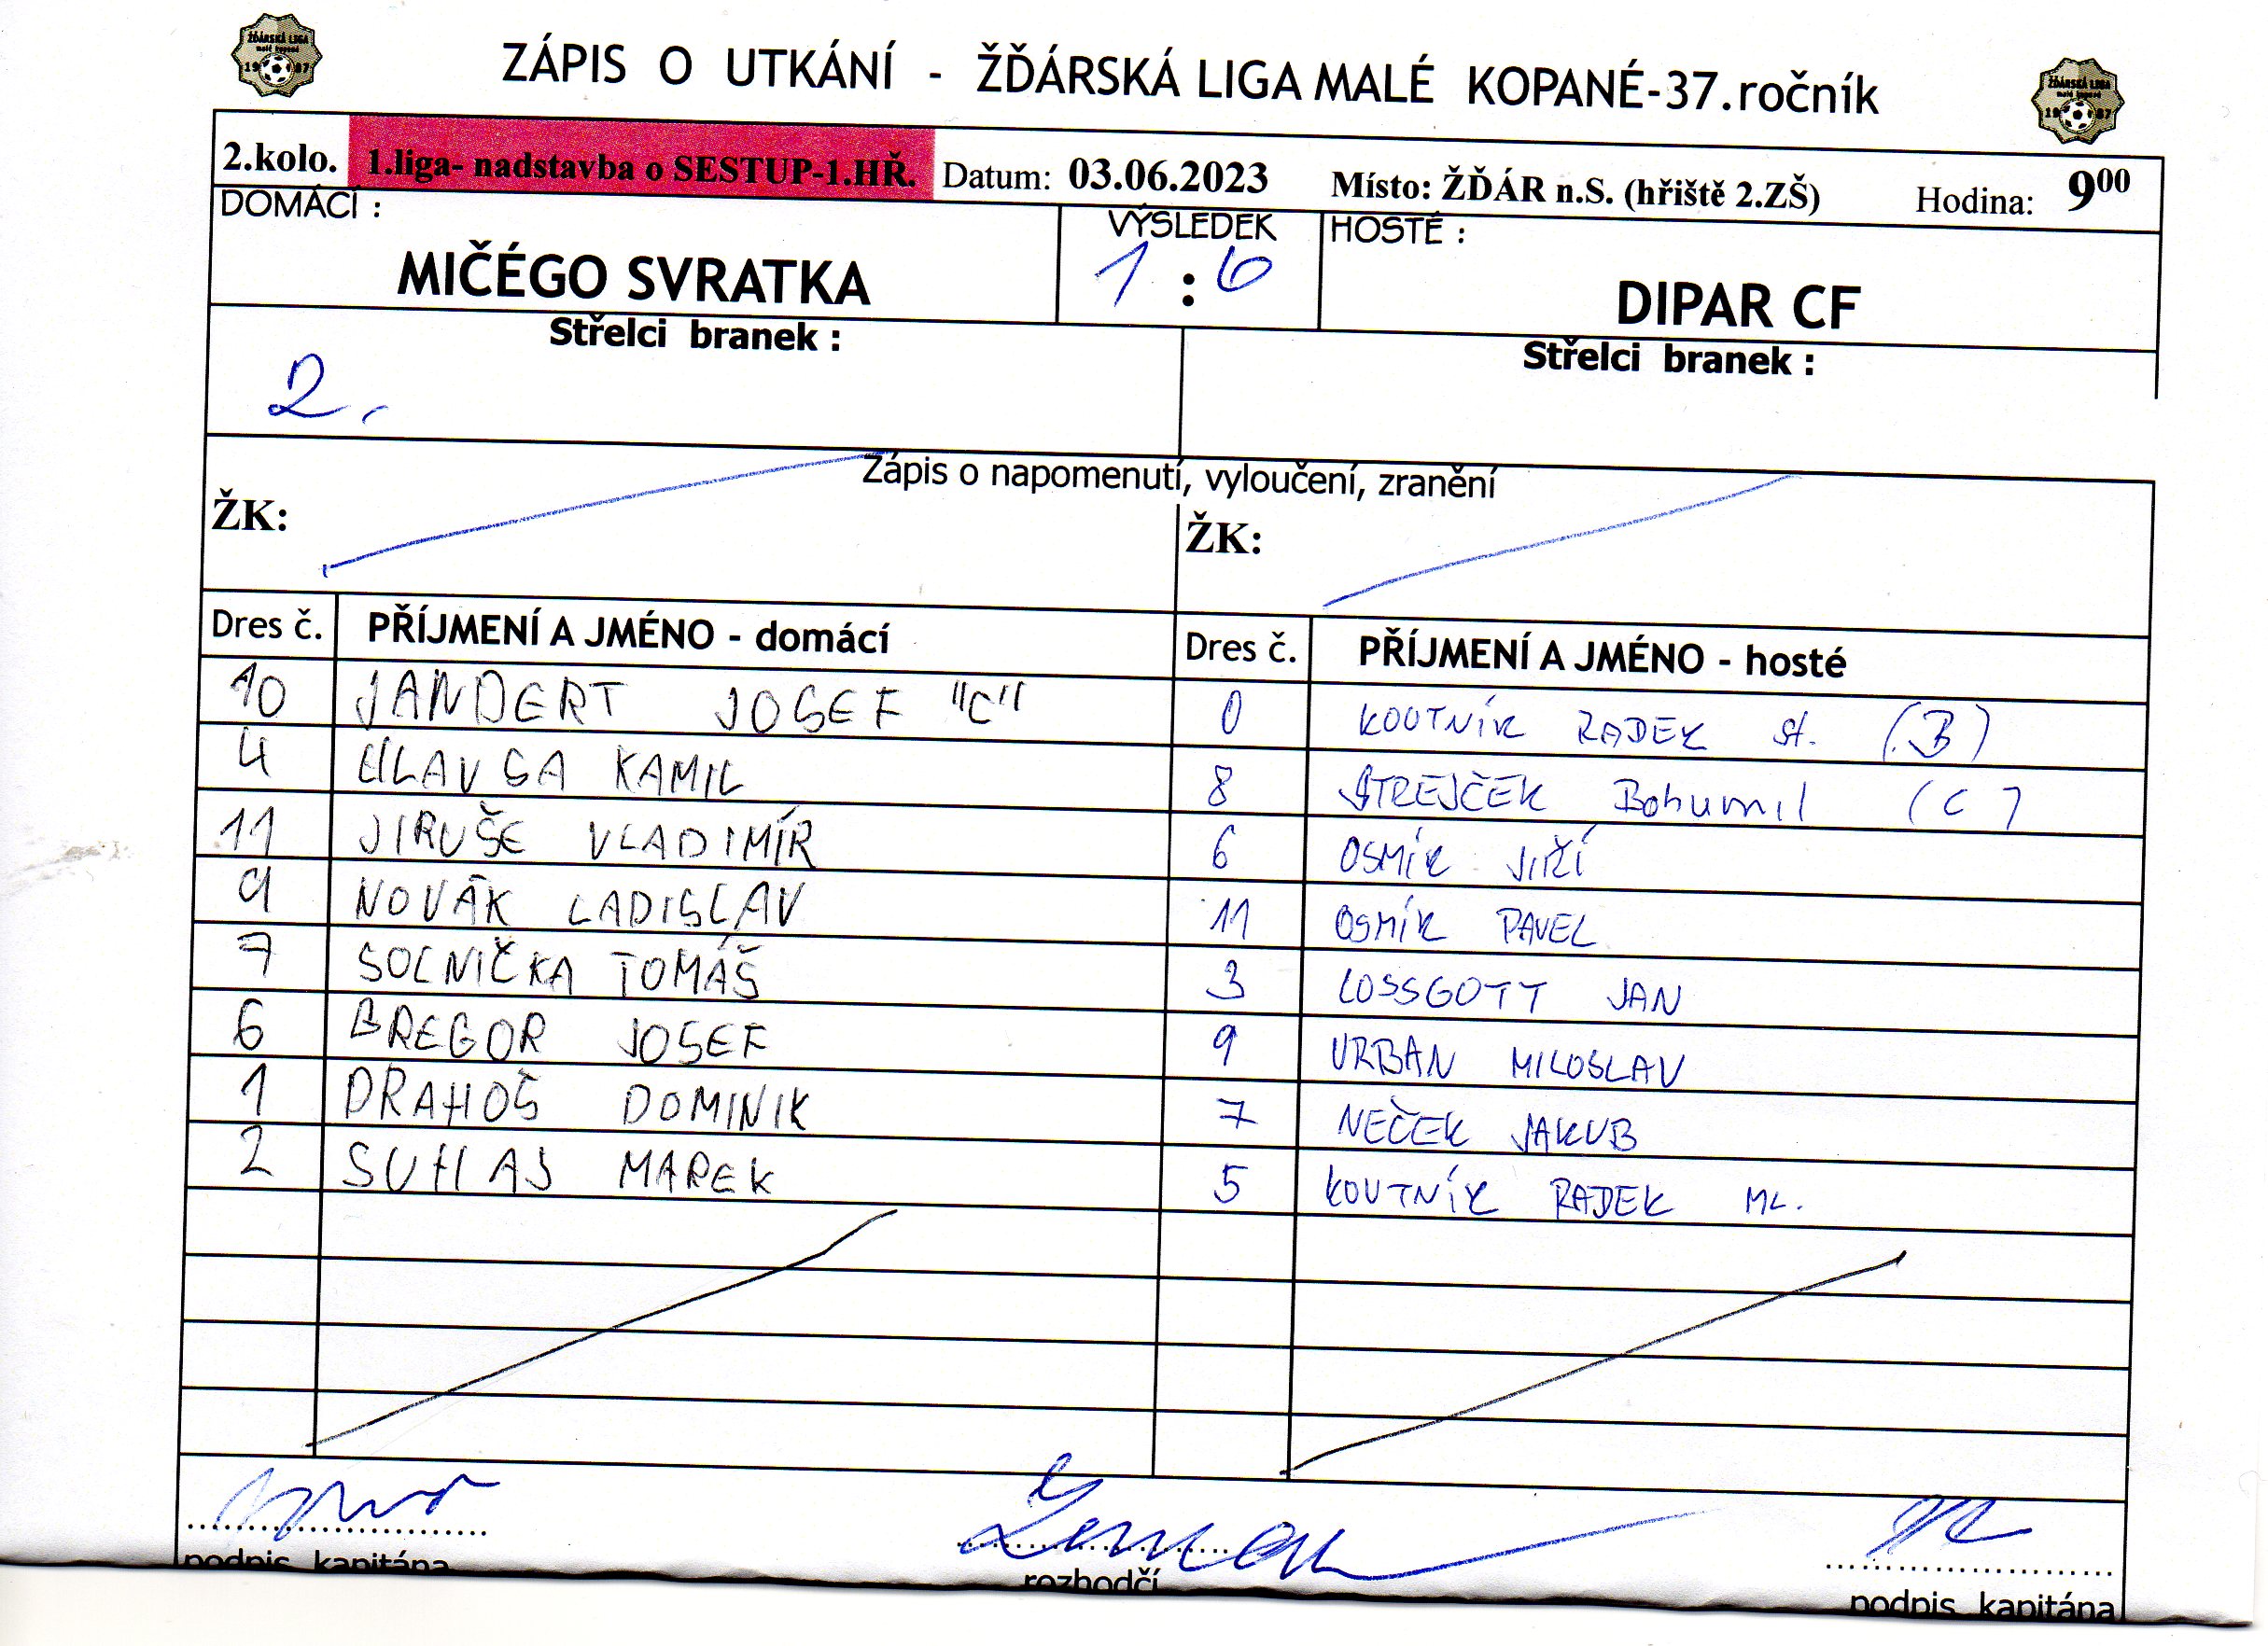 ZÁPIS O UTKÁNÍ - ŽĎÁRSKÁ LIGA MALÉ KOPANÉ-37.ročník
ŽĎÁRSKÁ LIGA
malé kopané
1987
ŽĎÁRSKÁ LIGA
malé kopané
1987
2.kolo. 1.liga- nadstavba o SESTUP-1.HŘ. Datum: 03.06.2023 Místo: ŽĎÁR n.S. (hřiště 2.ZŠ) Hodina: 9⁰⁰
DOMÁCÍ : VÝSLEDEK HOSTÉ :
MIČÉGO SVRATKA 1 : 6 DIPAR CF
Střelci branek : Střelci branek :
2.
Zápis o napomenutí, vyloučení, zranění
ŽK: ŽK:
Dres č. PŘÍJMENÍ A JMÉNO - domácí Dres č. PŘÍJMENÍ A JMÉNO - hosté
10 JANDERT JOSEF "C" 0 KOUTNÍK RADEK st. (B)
4 HLAVSA KAMIL 8 STREJČEK Bohumil (C)
11 JIRUŠE VLADIMÍR 6 OSMÍK JIŘÍ
9 NOVÁK LADISLAV 11 OSMÍK PAVEL
7 SOLNIČKA TOMÁŠ 3 LOSSGOTT JAN
6 BREGOR JOSEF 9 URBAN MILOSLAV
1 DRAHOŠ DOMINIK 7 NEČEK JAKUB
2 SUHAJ MAREK 5 KOUTNÍK RADEK ML.
podpis kapitána rozhodčí podpis kapitána